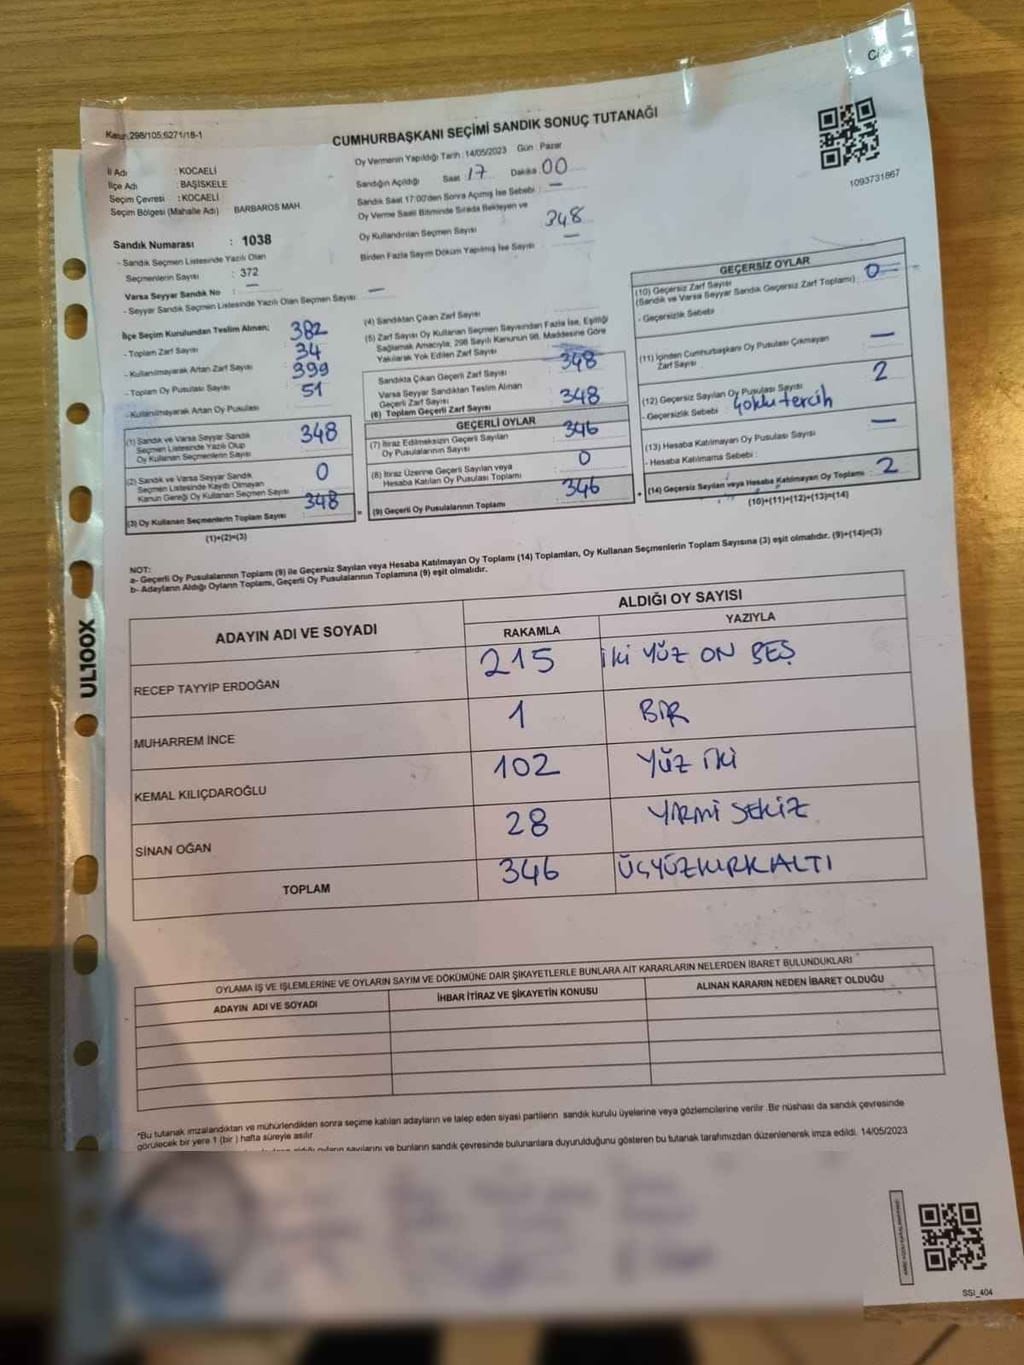 C/2
Kanun:298/105;6271/18-1
CUMHURBAŞKANI SEÇİMİ SANDIK SONUÇ TUTANAĞI
1093731867
İl Adı : KOCAELİ
İlçe Adı : BAŞİSKELE
Seçim Çevresi : KOCAELİ
Seçim Bölgesi (Mahalle Adı) BARBAROS MAH.
Sandık Numarası : 1038
- Sandık Seçmen Listesinde Yazılı Olan
Seçmenlerin Sayısı : 372
Varsa Seyyar Sandık No : —
- Seyyar Sandık Seçmen Listesinde Yazılı Olan Seçmen Sayısı : —
Oy Vermenin Yapıldığı Tarih : 14/05/2023 Gün : Pazar
Sandığın Açıldığı Saat : 17 Dakika : 00
Sandık Saat 17:00'den Sonra Açılmış İse Sebebi : —
Oy Verme Saati Bitiminde Sırada Bekleyen ve
Oy Kullandırılan Seçmen Sayısı : 348
Birden Fazla Sayım Döküm Yapılmış İse Sayısı : —
İlçe Seçim Kurulundan Teslim Alınan;
- Toplam Zarf Sayısı : 382
- Kullanılmayarak Artan Zarf Sayısı : 34
- Toplam Oy Pusulası Sayısı : 399
- Kullanılmayarak Artan Oy Pusulası : 51
(1) Sandık ve Varsa Seyyar Sandık
Seçmen Listesinde Yazılı Olup
Oy Kullanan Seçmenlerin Sayısı : 348
(2) Sandık ve Varsa Seyyar Sandık
Seçmen Listesinde Kayıtlı Olmayan
Kanun Gereği Oy Kullanan Seçmen Sayısı : 0
(3) Oy Kullanan Seçmenlerin Toplam Sayısı : 348
(1)+(2)=(3)
(4) Sandıktan Çıkan Zarf Sayısı :
(5) Zarf Sayısı Oy Kullanan Seçmen Sayısından Fazla İse, Eşitliği
Sağlamak Amacıyla, 298 Sayılı Kanunun 98. Maddesine Göre
Yakılarak Yok Edilen Zarf Sayısı :
Sandıkta Çıkan Geçerli Zarf Sayısı : 348
Varsa Seyyar Sandıktan Teslim Alınan
Geçerli Zarf Sayısı
(6) Toplam Geçerli Zarf Sayısı : 348
GEÇERLİ OYLAR
(7) İtiraz Edilmeksizin Geçerli Sayılan
Oy Pusulalarının Sayısı : 346
(8) İtiraz Üzerine Geçerli Sayılan veya
Hesaba Katılan Oy Pusulası Toplamı : 0
(9) Geçerli Oy Pusulalarının Toplamı : 346
GEÇERSİZ OYLAR
(10) Geçersiz Zarf Sayısı
(Sandık ve Varsa Seyyar Sandık Geçersiz Zarf Toplamı) : 0
- Geçersizlik Sebebi :
(11) İçinden Cumhurbaşkanı Oy Pusulası Çıkmayan
Zarf Sayısı : —
(12) Geçersiz Sayılan Oy Pusulası Sayısı : 2
- Geçersizlik Sebebi : Çoklu tercih
(13) Hesaba Katılmayan Oy Pusulası Sayısı : —
- Hesaba Katılmama Sebebi :
(14) Geçersiz Sayılan veya Hesaba Katılmayan Oy Toplamı : 2
(10)+(11)+(12)+(13)=(14)
NOT:
a- Geçerli Oy Pusulalarının Toplamı (9) ile Geçersiz Sayılan veya Hesaba Katılmayan Oy Toplamı (14) Toplamları, Oy Kullanan Seçmenlerin Toplam Sayısına (3) eşit olmalıdır. (9)+(14)=(3)
b- Adayların Aldığı Oyların Toplamı, Geçerli Oy Pusulalarının Toplamına (9) eşit olmalıdır.
ADAYIN ADI VE SOYADI
ALDIĞI OY SAYISI
RAKAMLA YAZIYLA
RECEP TAYYİP ERDOĞAN 215 İKİ YÜZ ON BEŞ
MUHARREM İNCE 1 BİR
KEMAL KILIÇDAROĞLU 102 YÜZ İKİ
SİNAN OĞAN 28 YİRMİ SEKİZ
TOPLAM 346 ÜÇYÜZKIRKALTI
OYLAMA İŞ VE İŞLEMLERİNE VE OYLARIN SAYIM VE DÖKÜMÜNE DAİR ŞİKAYETLERLE BUNLARA AİT KARARLARIN NELERDEN İBARET BULUNDUKLARI
ADAYIN ADI VE SOYADI İHBAR İTİRAZ VE ŞİKAYETİN KONUSU ALINAN KARARIN NEDEN İBARET OLDUĞU
*Bu tutanak imzalandıktan ve mühürlendikten sonra seçime katılan adayların ve talep eden siyasi partilerin sandık kurulu üyelerine veya gözlemcilerine verilir .Bir nüshası da sandık çevresinde
görülecek bir yere 1 (bir ) hafta süreyle asılır.
aldığı oyların sayılarını ve bunların sandık çevresinde bulunanlara duyurulduğunu gösteren bu tutanak tarafımızdan düzenlenerek imza edildi. 14/05/2023
SSI_404
UL100X